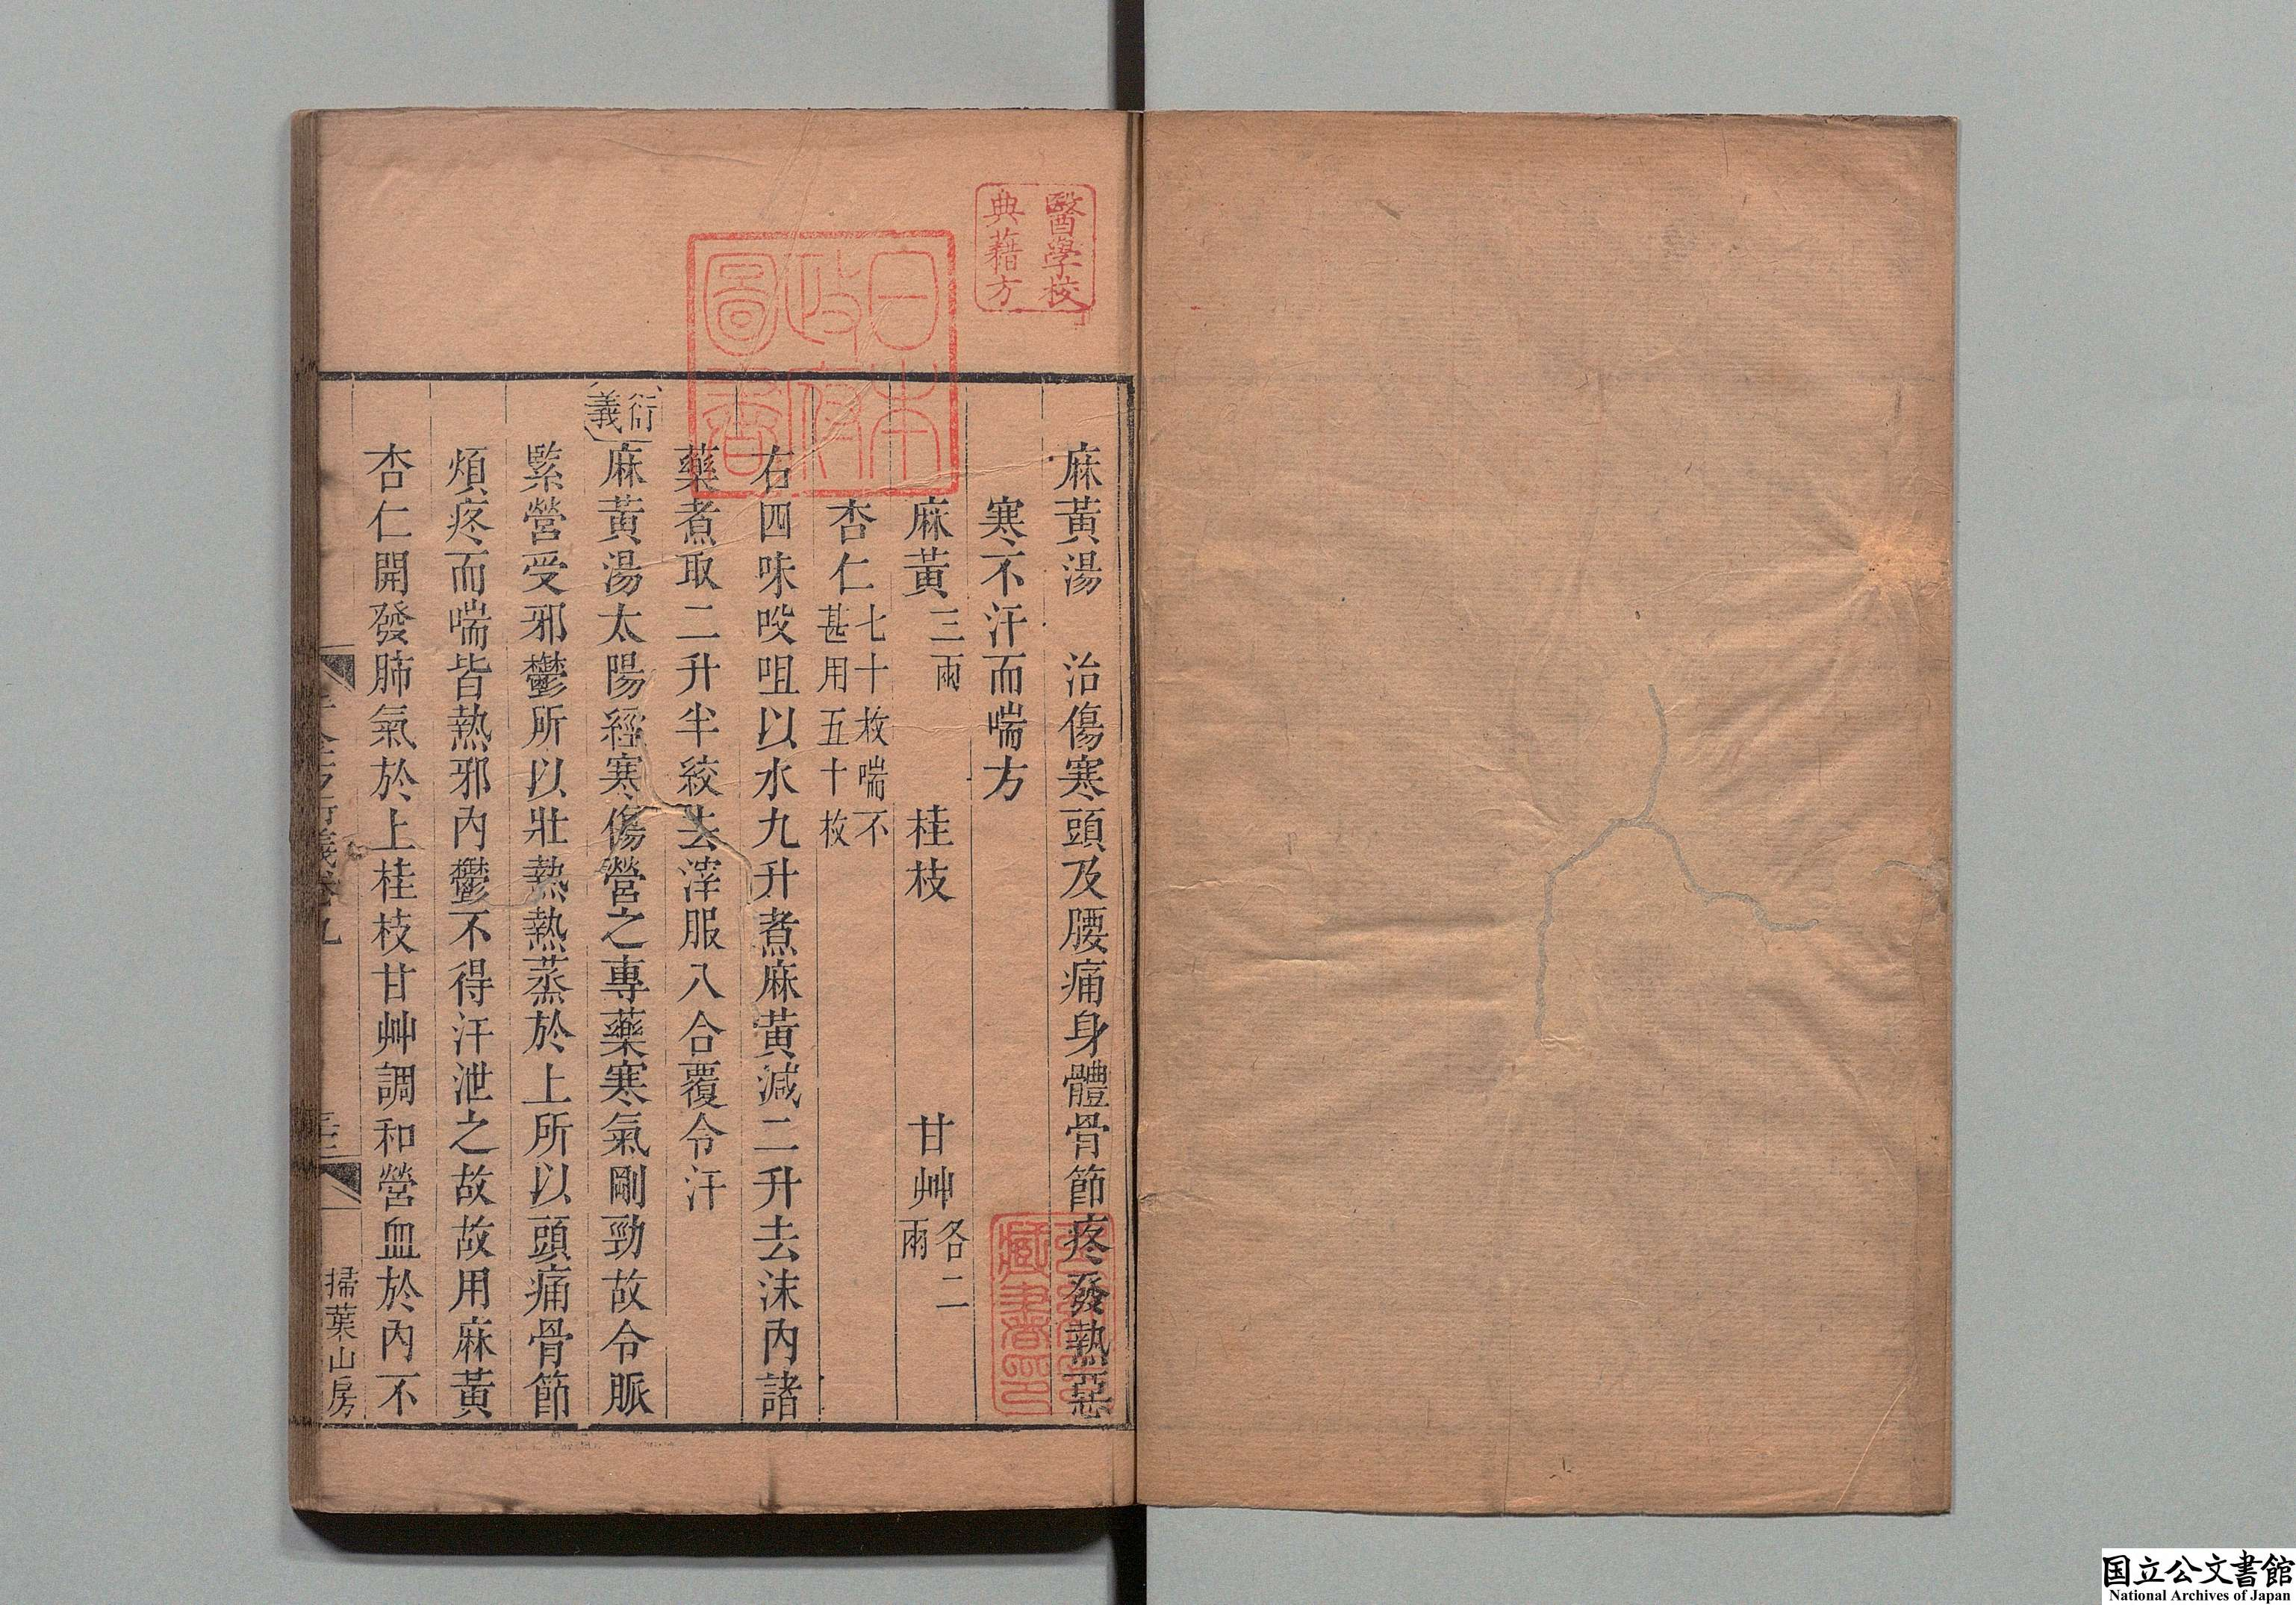 醫學校
典藉方
日本
政府
圖書
麻黃湯　治傷寒頭及腰痛身體骨節疼發熱惡
寒不汗而喘方
麻黃三兩　桂枝　甘艸各二兩
杏仁七十枚喘不甚用五十枚
右四味㕮咀以水九升煮麻黃減二升去沫內諸
藥煮取二升半絞去滓服八合覆令汗
衍義
麻黃湯太陽經寒傷營之專藥寒氣剛勁故令脈
緊營受邪鬱所以壯熱熱蒸於上所以頭痛骨節
煩疼而喘皆熱邪內鬱不得汗泄之故故用麻黃
杏仁開發肺氣於上桂枝甘艸調和營血於內不
衍義卷九
掃葉山房
国立公文書館
National Archives of Japan